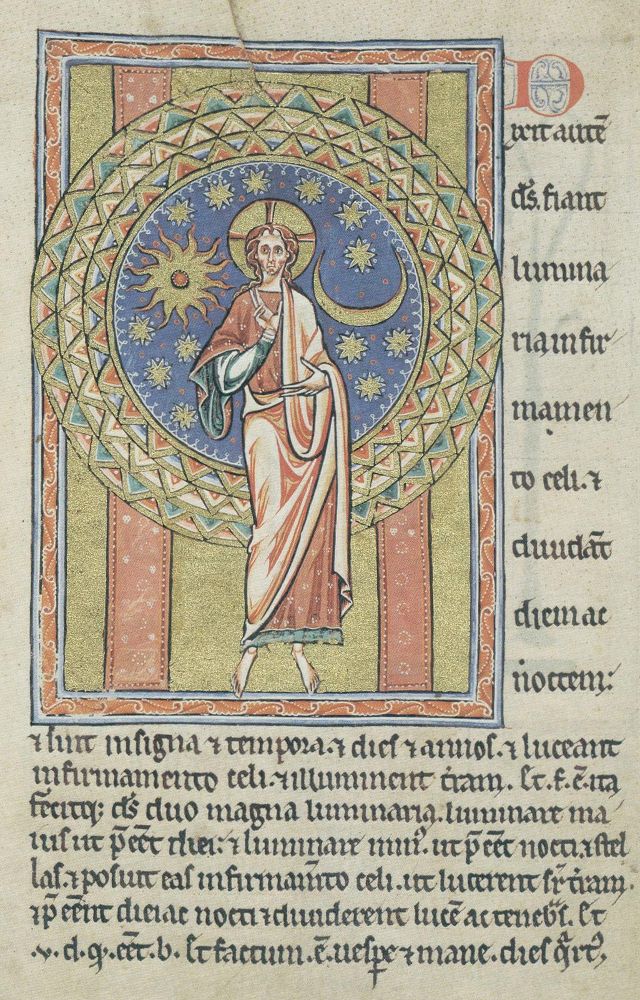 D
ixit aute̅
d̅s. fiant
lumina
ria in fir
mamen
to celi. ⁊
diuida̅t
diem ac
noctem:
⁊ sint in signa ⁊ tempora. ⁊ dies ⁊ annos. ⁊ luceant
in firmamento celi. ⁊ illuminent t̅ram. Et. f. e̅. ita
fecitq; d̅s duo magna luminaria. luminare ma
ius ut p̅ee̅t diei: ⁊ luminare min᷒. ut p̅ee̅t nocti. ⁊ stel
las. ⁊ posuit eas in firmam̅to celi. ut lucerent sr̅ t̅ram.
⁊ p̅ee̅nt diei ac nocti ⁊ diuiderent luce̅ ac teneb̅s. Et
.v. d. q. ee̅t. b. Et factum. e̅. uespe ⁊ mane. dies q̅rt᷒.